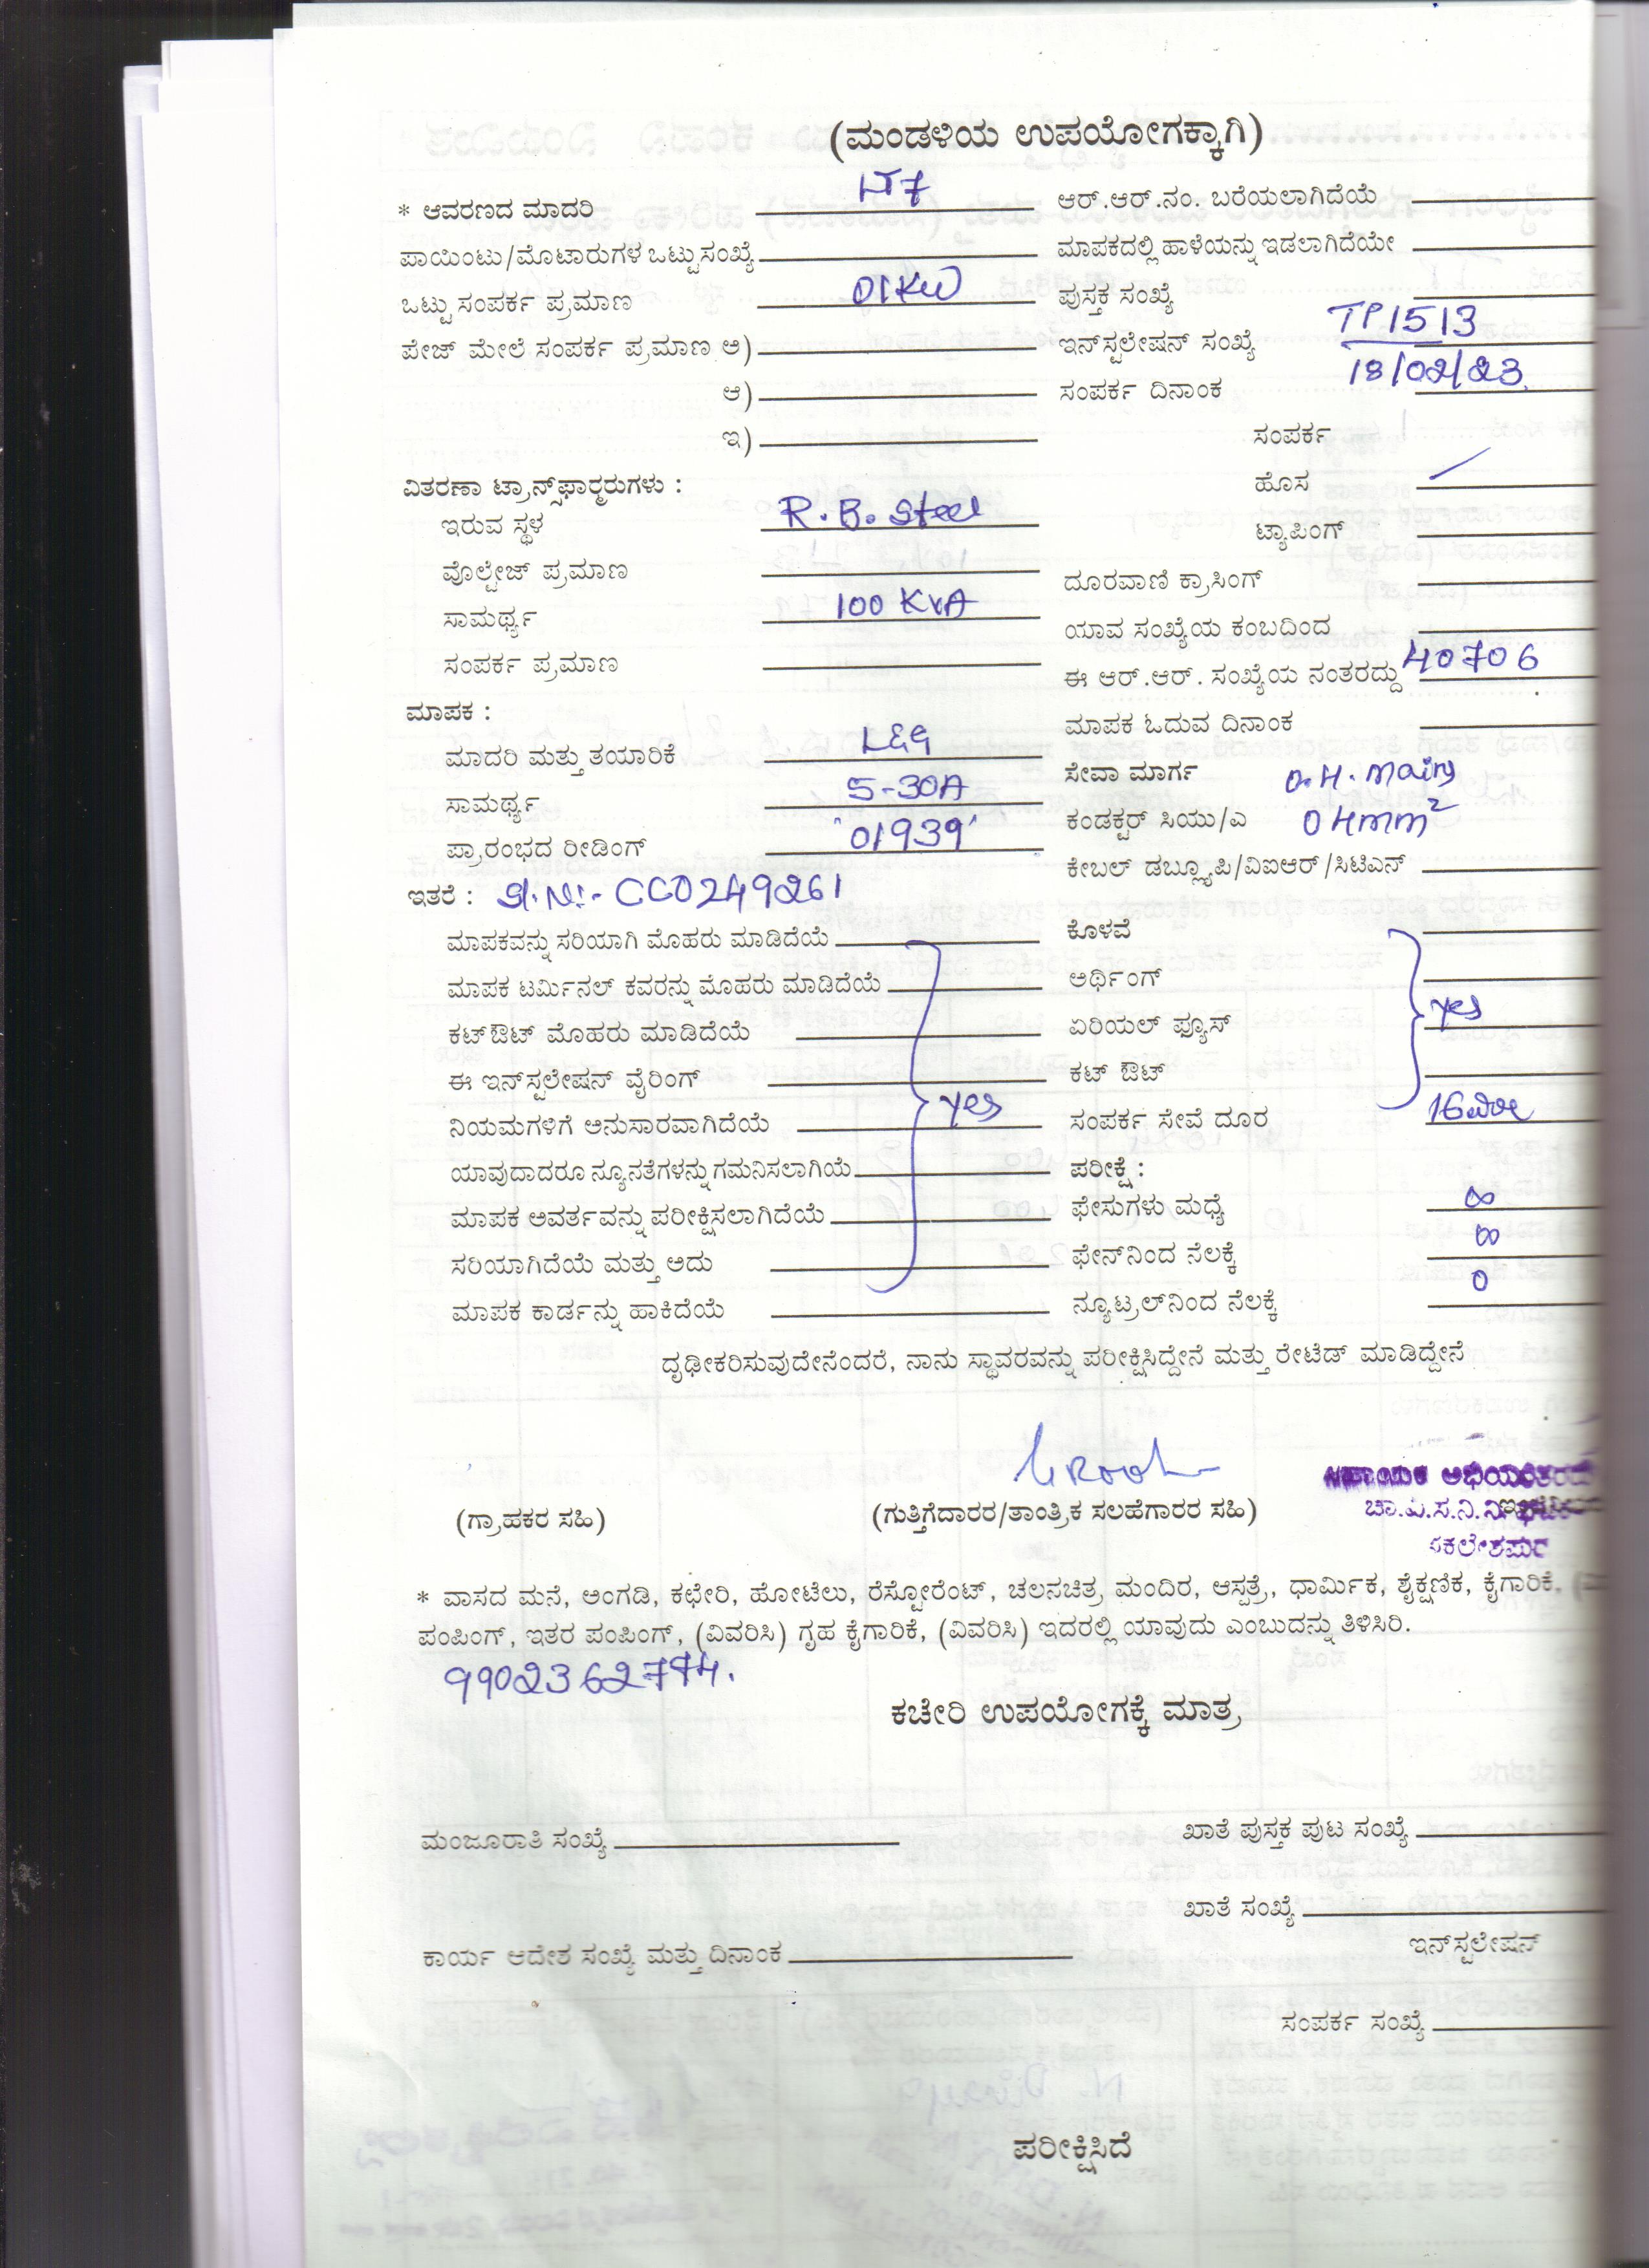 (ಮಂಡಳಿಯ ಉಪಯೋಗಕ್ಕಾಗಿ)
* ಆವರಣದ ಮಾದರಿ LT7 ಆರ್.ಆರ್.ನಂ. ಬರೆಯಲಾಗಿದೆಯೆ
ಪಾಯಿಂಟು/ಮೊಟಾರುಗಳ ಒಟ್ಟುಸಂಖ್ಯೆ ಮಾಪಕದಲ್ಲಿ ಹಾಳೆಯನ್ನು ಇಡಲಾಗಿದೆಯೇ
ಒಟ್ಟು ಸಂಪರ್ಕ ಪ್ರಮಾಣ 01KW ಪುಸ್ತಕ ಸಂಖ್ಯೆ
ಪೇಜ್ ಮೇಲೆ ಸಂಪರ್ಕ ಪ್ರಮಾಣ ಅ) ಇನ್‌ಸ್ಟಲೇಷನ್ ಸಂಖ್ಯೆ TP1513
ಆ) ಸಂಪರ್ಕ ದಿನಾಂಕ 18/02/23
ಇ) ಸಂಪರ್ಕ
ವಿತರಣಾ ಟ್ರಾನ್ಸ್‌ಫಾರ್‍ಮರುಗಳು : ಹೊಸ
ಇರುವ ಸ್ಥಳ R.B. Steel ಟ್ಯಾಪಿಂಗ್
ವೊಲ್ಟೇಜ್ ಪ್ರಮಾಣ ದೂರವಾಣಿ ಕ್ರಾಸಿಂಗ್
ಸಾಮರ್ಥ್ಯ 100 KVA ಯಾವ ಸಂಖ್ಯೆಯ ಕಂಬದಿಂದ
ಸಂಪರ್ಕ ಪ್ರಮಾಣ ಈ ಆರ್.ಆರ್. ಸಂಖ್ಯೆಯ ನಂತರದ್ದು 40706
ಮಾಪಕ : ಮಾಪಕ ಓದುವ ದಿನಾಂಕ
ಮಾದರಿ ಮತ್ತು ತಯಾರಿಕೆ L&G ಸೇವಾ ಮಾರ್ಗ O.H. mains
ಸಾಮರ್ಥ್ಯ 5-30A ಕಂಡಕ್ಟರ್ ಸಿಯು/ಎ 04mm²
ಪ್ರಾರಂಭದ ರೀಡಿಂಗ್ '01939' ಕೇಬಲ್ ಡಬ್ಲ್ಯೂಪಿ/ವಿಐಆರ್/ಸಿಟಿಎನ್
ಇತರೆ : Sl.No:- CC0249261
ಮಾಪಕವನ್ನು ಸರಿಯಾಗಿ ಮೊಹರು ಮಾಡಿದೆಯೆ ಕೊಳವೆ
ಮಾಪಕ ಟರ್ಮಿನಲ್ ಕವರನ್ನು ಮೊಹರು ಮಾಡಿದೆಯೆ ಅರ್ಥಿಂಗ್
ಕಟ್‌ಔಟ್ ಮೊಹರು ಮಾಡಿದೆಯೆ ಏರಿಯಲ್ ಫ್ಯೂಸ್ yes
ಈ ಇನ್‌ಸ್ಟಲೇಷನ್ ವೈರಿಂಗ್ ಕಟ್ ಔಟ್
ನಿಯಮಗಳಿಗೆ ಅನುಸಾರವಾಗಿದೆಯೆ yes ಸಂಪರ್ಕ ಸೇವೆ ದೂರ
ಯಾವುದಾದರೂ ನ್ಯೂನತೆಗಳನ್ನು ಗಮನಿಸಲಾಗಿಯೆ ಪರೀಕ್ಷೆ :
ಮಾಪಕ ಅವರ್ತವನ್ನು ಪರೀಕ್ಷಿಸಲಾಗಿದೆಯೆ ಫೇಸುಗಳು ಮಧ್ಯೆ ∞
ಸರಿಯಾಗಿದೆಯೆ ಮತ್ತು ಅದು ಫೇಸ್‌ನಿಂದ ನೆಲಕ್ಕೆ ∞
ಮಾಪಕ ಕಾರ್ಡನ್ನು ಹಾಕಿದೆಯೆ ನ್ಯೂಟ್ರಲ್‌ನಿಂದ ನೆಲಕ್ಕೆ 0
ದೃಢೀಕರಿಸುವುದೇನೆಂದರೆ, ನಾನು ಸ್ಥಾವರವನ್ನು ಪರೀಕ್ಷಿಸಿದ್ದೇನೆ ಮತ್ತು ರೇಟೆಡ್ ಮಾಡಿದ್ದೇನೆ
(ಗ್ರಾಹಕರ ಸಹಿ) (ಗುತ್ತಿಗೆದಾರರ/ತಾಂತ್ರಿಕ ಸಲಹೆಗಾರರ ಸಹಿ)
ಚಾ.ವಿ.ಸ.ನಿ.ನಿ
* ವಾಸದ ಮನೆ, ಅಂಗಡಿ, ಕಛೇರಿ, ಹೋಟೆಲು, ರೆಸ್ಟೋರೆಂಟ್, ಚಲನಚಿತ್ರ ಮಂದಿರ, ಆಸ್ಪತ್ರೆ, ಧಾರ್ಮಿಕ, ಶೈಕ್ಷಣಿಕ, ಕೈಗಾರಿಕೆ,
ಪಂಪಿಂಗ್, ಇತರ ಪಂಪಿಂಗ್, (ವಿವರಿಸಿ) ಗೃಹ ಕೈಗಾರಿಕೆ, (ವಿವರಿಸಿ) ಇದರಲ್ಲಿ ಯಾವುದು ಎಂಬುದನ್ನು ತಿಳಿಸಿರಿ.
9902362774.
ಕಚೇರಿ ಉಪಯೋಗಕ್ಕೆ ಮಾತ್ರ
ಮಂಜೂರಾತಿ ಸಂಖ್ಯೆ ಖಾತೆ ಪುಸ್ತಕ ಪುಟ ಸಂಖ್ಯೆ
ಖಾತೆ ಸಂಖ್ಯೆ
ಕಾರ್ಯ ಆದೇಶ ಸಂಖ್ಯೆ ಮತ್ತು ದಿನಾಂಕ ಇನ್‌ಸ್ಟಲೇಷನ್
ಸಂಪರ್ಕ ಸಂಖ್ಯೆ
ಪರೀಕ್ಷಿಸಿದೆ